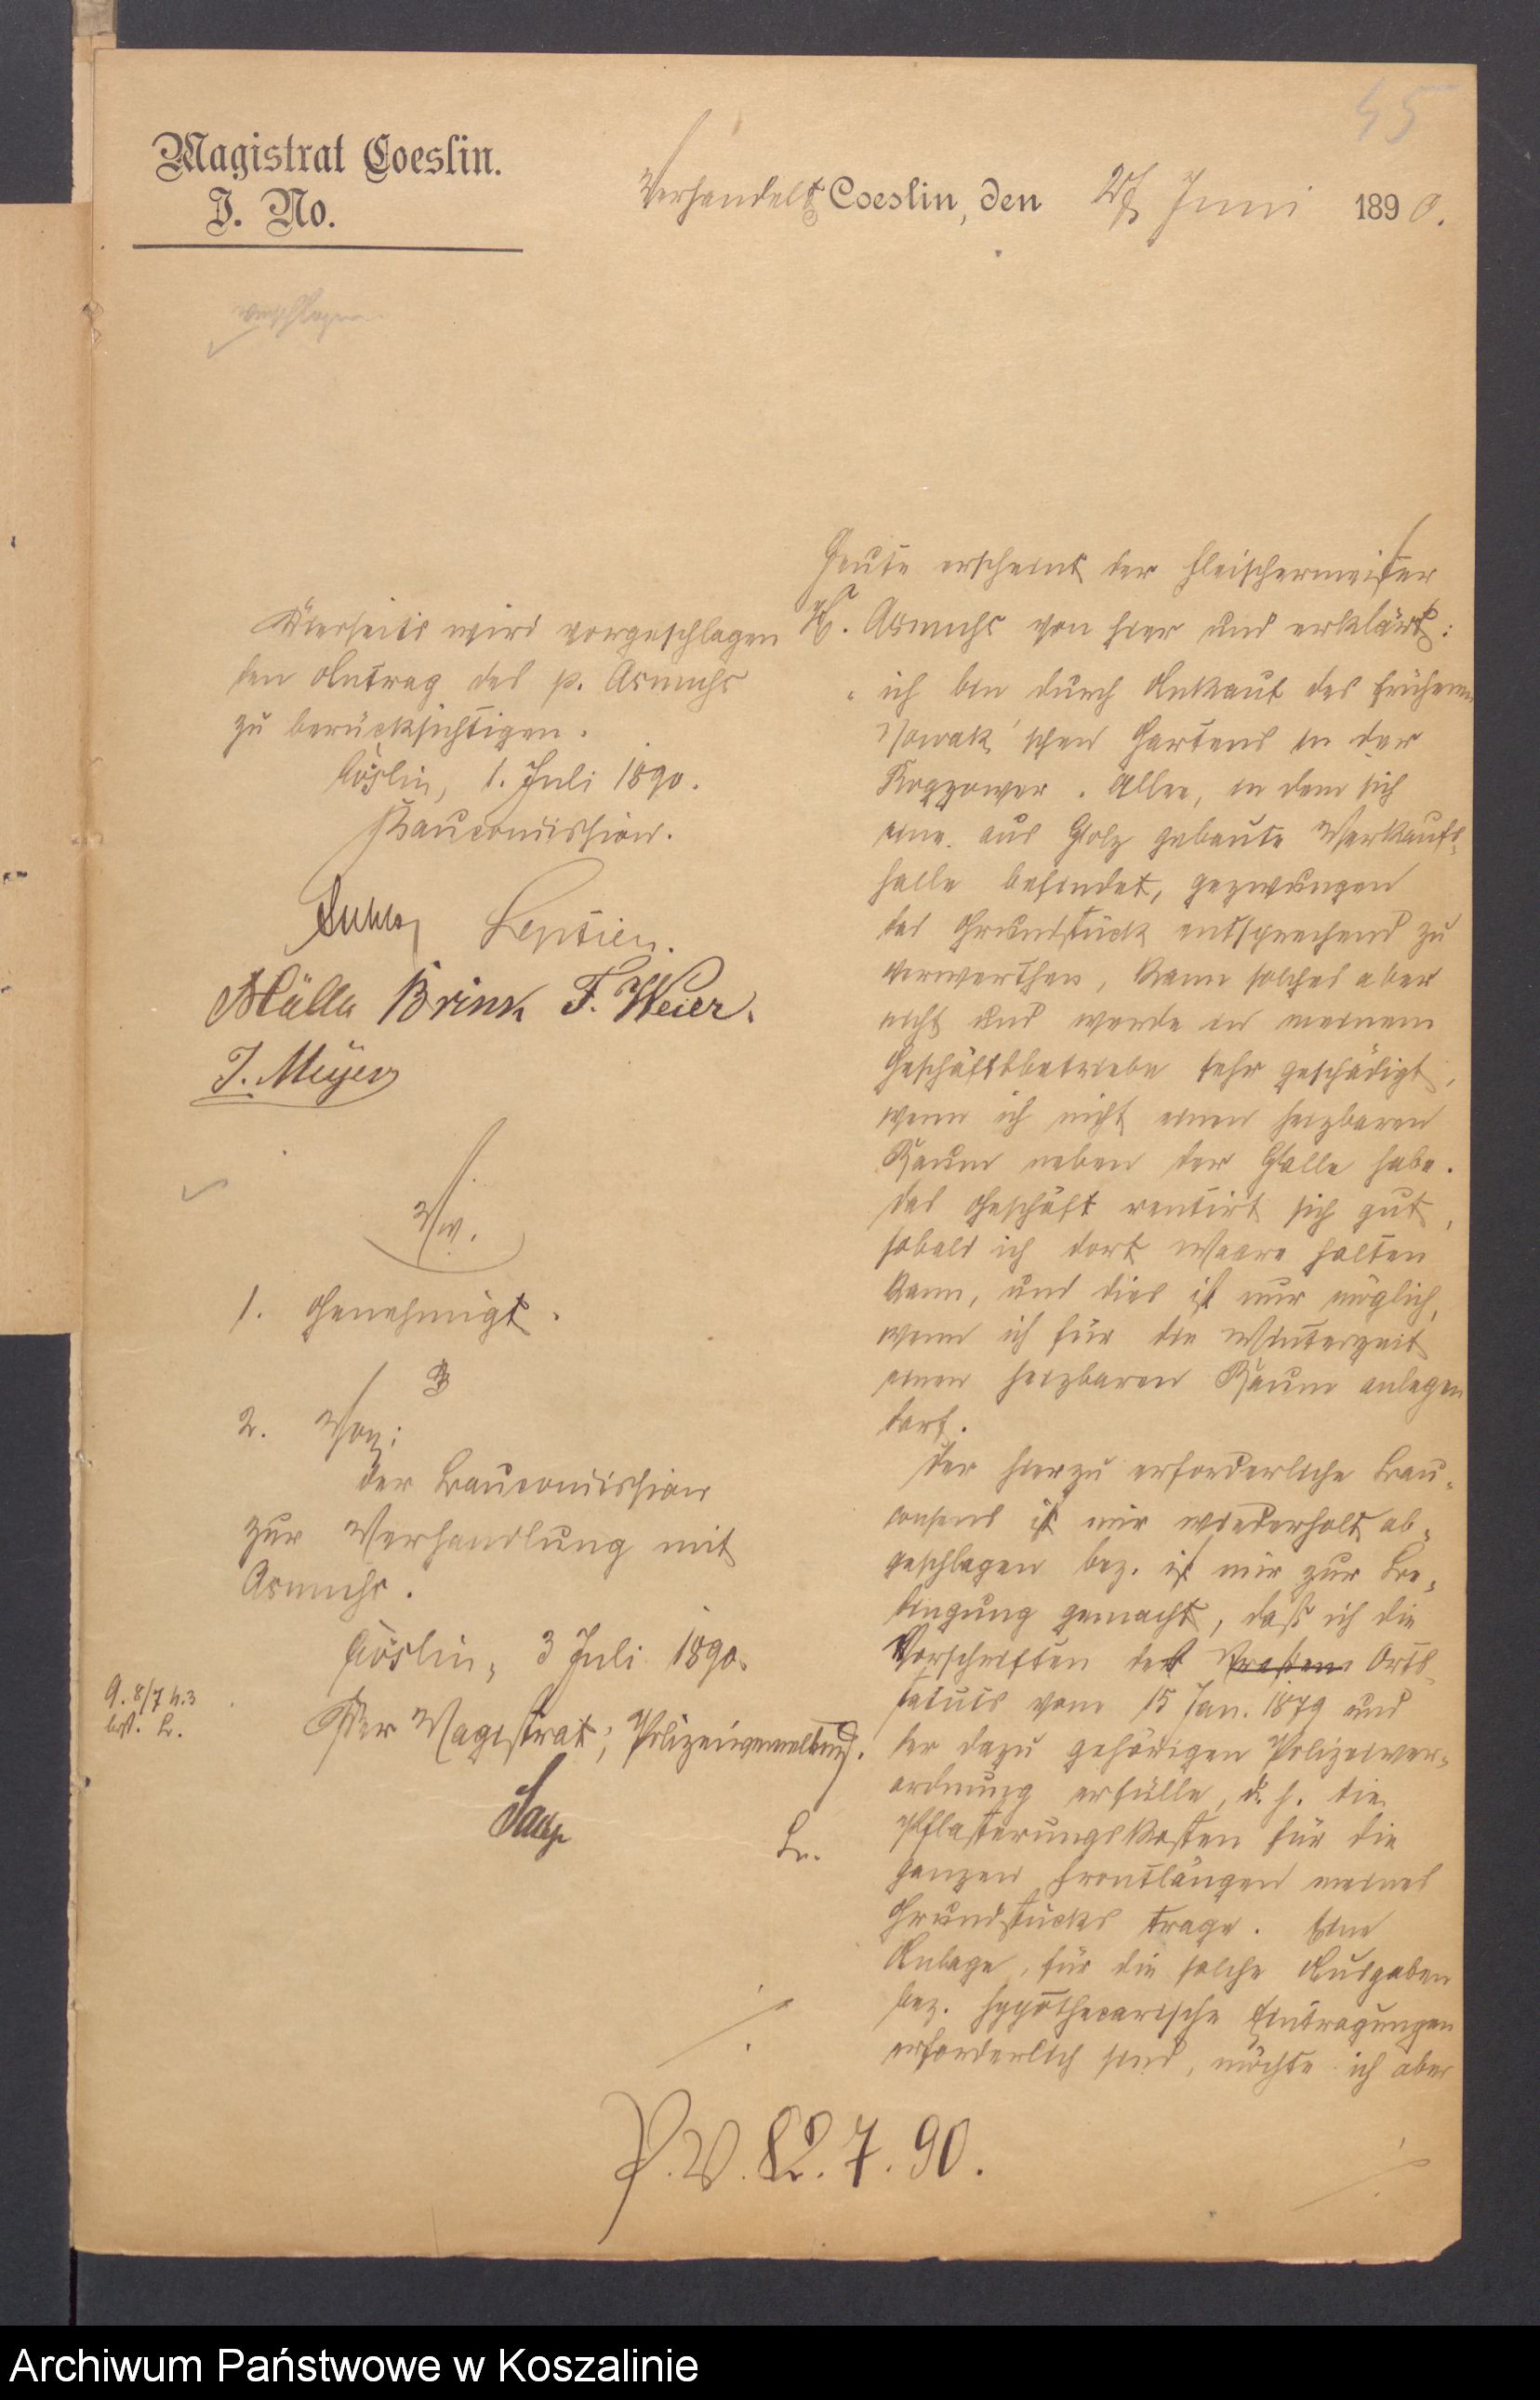 45
Magistrat Coeslin.
J. No.
Verhandelt Coeslin, den 27 Juni 1890.
Heute erscheint der Fleischermeister
Asmuhs von hier und erklärt:
ich bin durch Ankauf des früheren
Nowak'schen Gartens in der
Rogzower Allee, in dem sich
eine aus Holz gebaute Verkaufs-
halle befindet, gezwungen
das Grundstück entsprechend zu
verwerthen, kann solches aber
nicht und werde in meinem
Geschäftsbetriebe sehr geschädigt,
wenn ich nicht einen heizbaren
Raum neben der Halle habe.
Das Geschäft rentirt sich gut,
sobald ich dort Waare halten
kann, und dies ist nur möglich,
wenn ich für die Winterzeit
einen heizbaren Raum anlegen
darf.
Der hierzu erforderliche Bau-
consens ist mir wiederholt ab-
geschlagen bez. ist mir zur Be-
dingung gemacht, daß ich die
Vorschriften des Orts-
statuts vom 15 Jan. 1879 und
der dazu gehörigen Polizeiver-
ordnung erfülle, d. h. die
Pflasterungskosten für die
ganzen Frontlängen meines
Grundstücks trage. Eine
Anlage, für die solche Ausgaben
bez. hypothecarische Eintragungen
erforderlich sind, möchte ich aber
Hierseits wird vorgeschlagen
den Antrag des p. Asmuhs
zu berücksichtigen.
Cöslin, 1. Juli 1890.
Baucomission.
Leptien.
Brink F. Weier.
J. Meyer
Vfg.
1. Genehmigt.
2.
der Baucomission
zur Verhandlung mit
Asmuhs.
Cöslin, 3 Juli 1890.
Der Magistrat; Polizeiverwaltung.
P.V. 82.7.90.
Archiwum Państwowe w Koszalinie